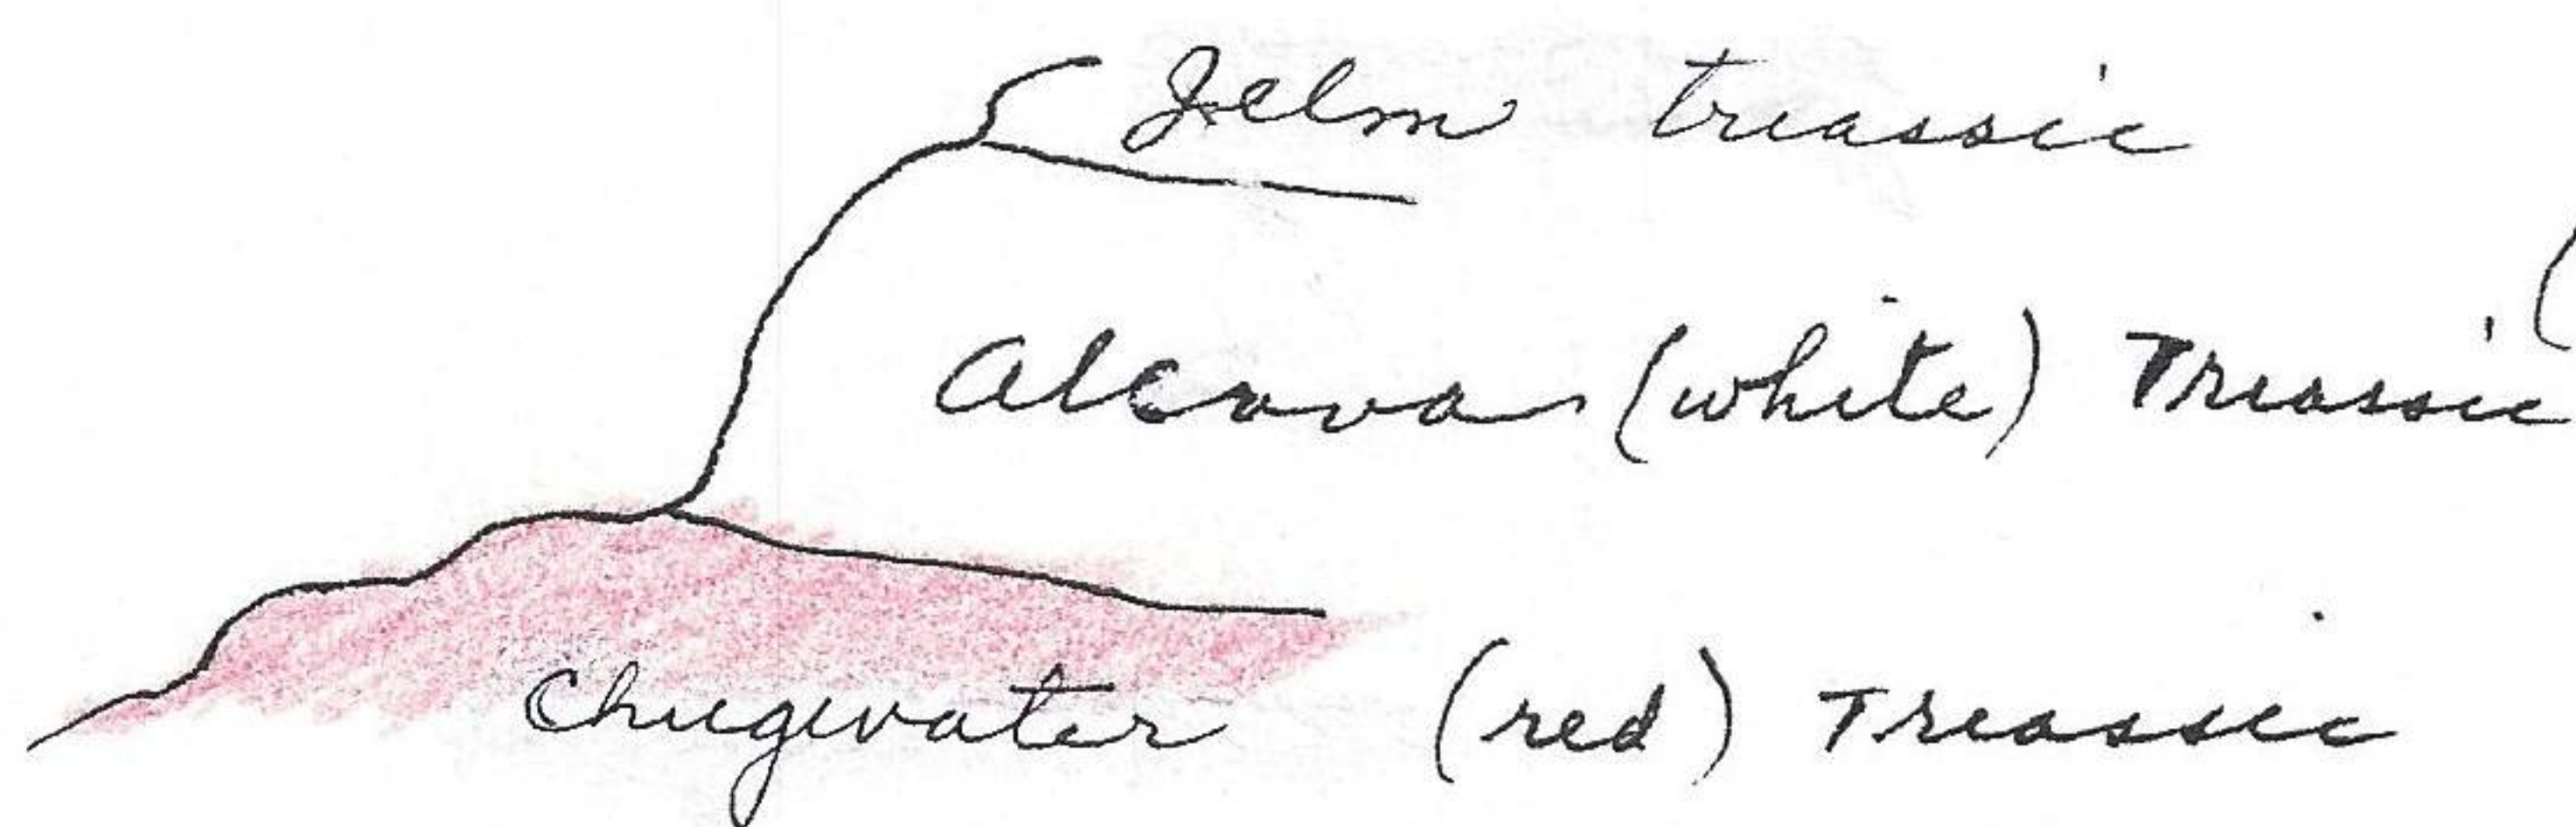 Jelm triassic
Alcova (white) Triassic
Chugwater (red) Triassic